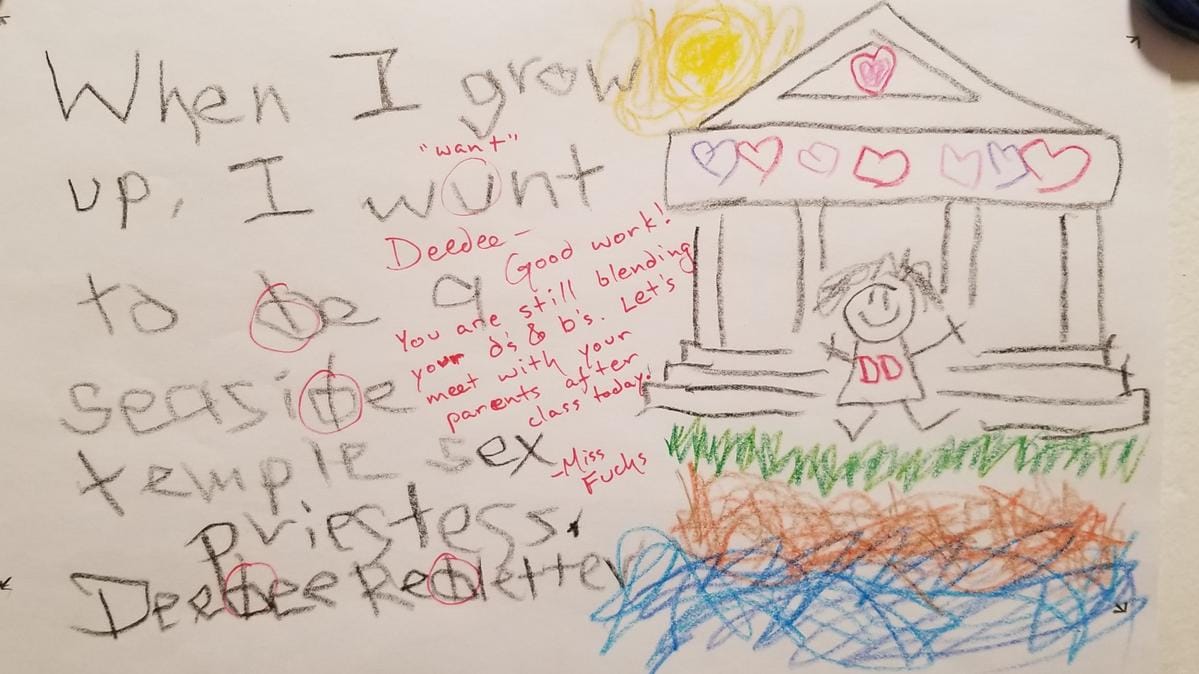 When I grow
up, I wunt
"want"
to be a
seaside
temple sex
priestess.
Deedee Redletter
Deedee –
Good work!
You are still blending
your d's & b's. Let's
meet with your
parents after
class today!
-Miss
Fuchs
DD